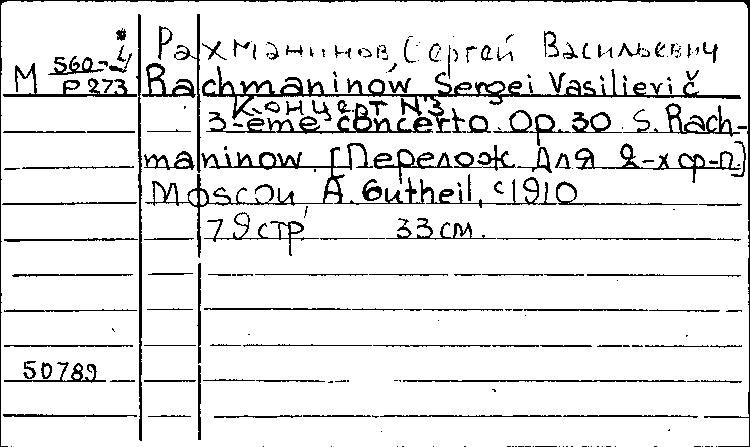 Рахманинов, Сергей Васильевич
М 560-4
Р273
Rachmaninow Sergei Vasilievič
Концерт N3
3-ème concerto. Op. 30 S. Rach-
maninow. [Перелож. для 2-х ф-п.]
Moscou, A. Gutheil, c1910
79 стр. 33 см.
50789